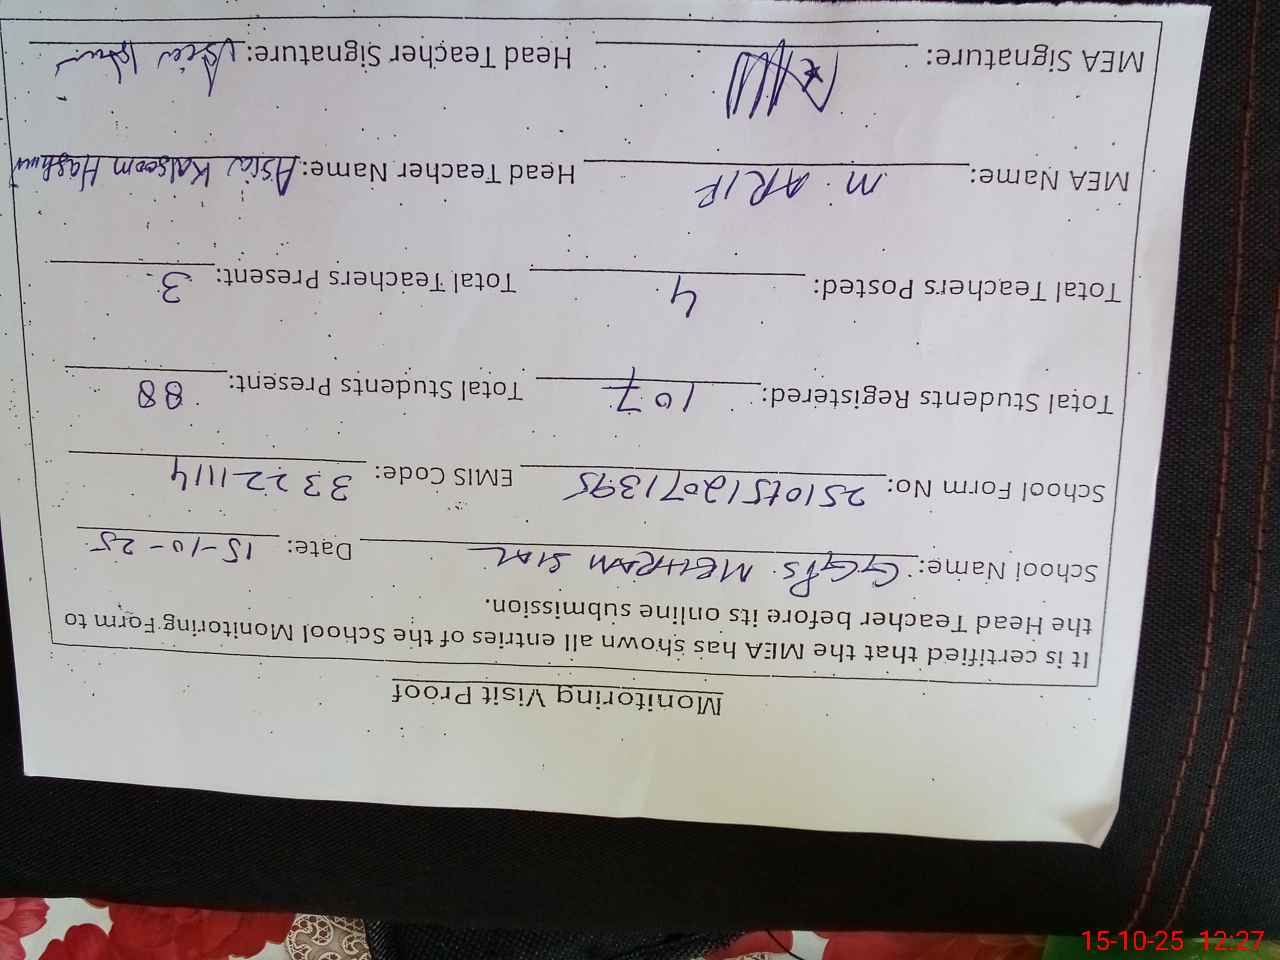 Monitoring Visit Proof
It is certified that the MEA has shown all entries of the School Monitoring Form to
the Head Teacher before its online submission.
School Name: GGPS MEHRAM SIAL Date: 15-10-25
School Form No: EMIS Code: 33221114
Total Students Registered: 107 Total Students Present: 88
Total Teachers Posted: 4 Total Teachers Present: 3
MEA Name: M. ARIF Head Teacher Name: Asia Kalsoom
MEA Signature: Head Teacher Signature: Asia
15-10-25 12:27